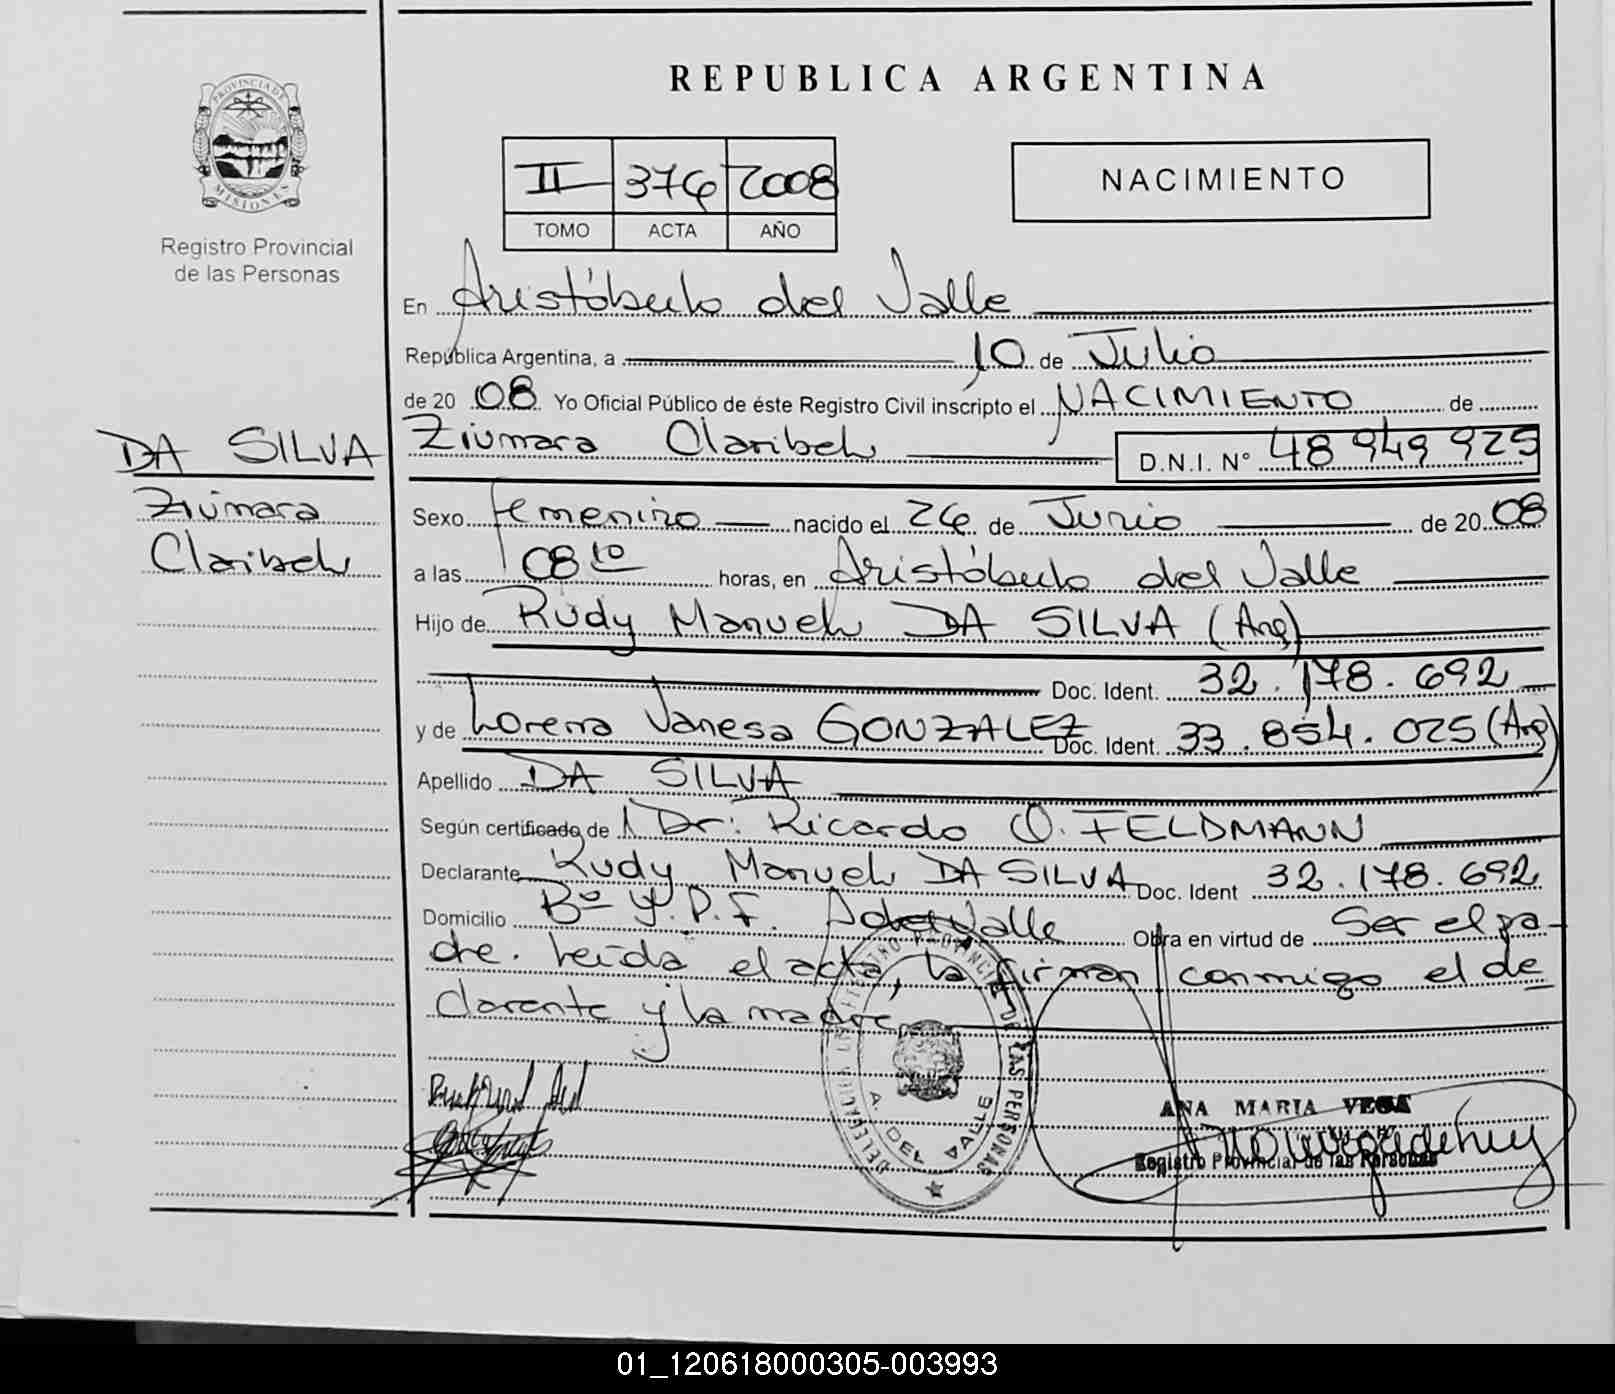 REPUBLICA ARGENTINA
PROVINCIA DE MISIONES
Registro Provincial
de las Personas
II 376 2008
TOMO ACTA AÑO
NACIMIENTO
DA SILVA
Ziomara
Claribel
En Aristóbulo del Valle
República Argentina, a 10 de Julio
de 20 08 Yo Oficial Público de éste Registro Civil inscripto el NACIMIENTO de
Ziomara Claribel D.N.I. N° 48 949 925
Sexo femenino nacido el 26 de Junio de 20 08
a las 08 10 horas, en Aristóbulo del Valle
Hijo de Rudy Manuel DA SILVA (Arg)
Doc. Ident. 32.178.692
y de Lorena Vanesa GONZALEZ Doc. Ident. 33.854.025 (Arg)
Apellido DA SILVA
Según certificado de Dr: Ricardo O. FELDMANN
Declarante Rudy Manuel DA SILVA Doc. Ident 32.178.692
Domicilio Bº Y.P.F. A del Valle Obra en virtud de Ser el pa-
dre. Leída el acta, la firman conmigo el de
clarante y la madre
REGISTRO PROVINCIAL DE LAS PERSONAS
DELEGACION
A. DEL VALLE
ANA MARIA VEGA
Registro Provincial de las Personas
01_120618000305-003993